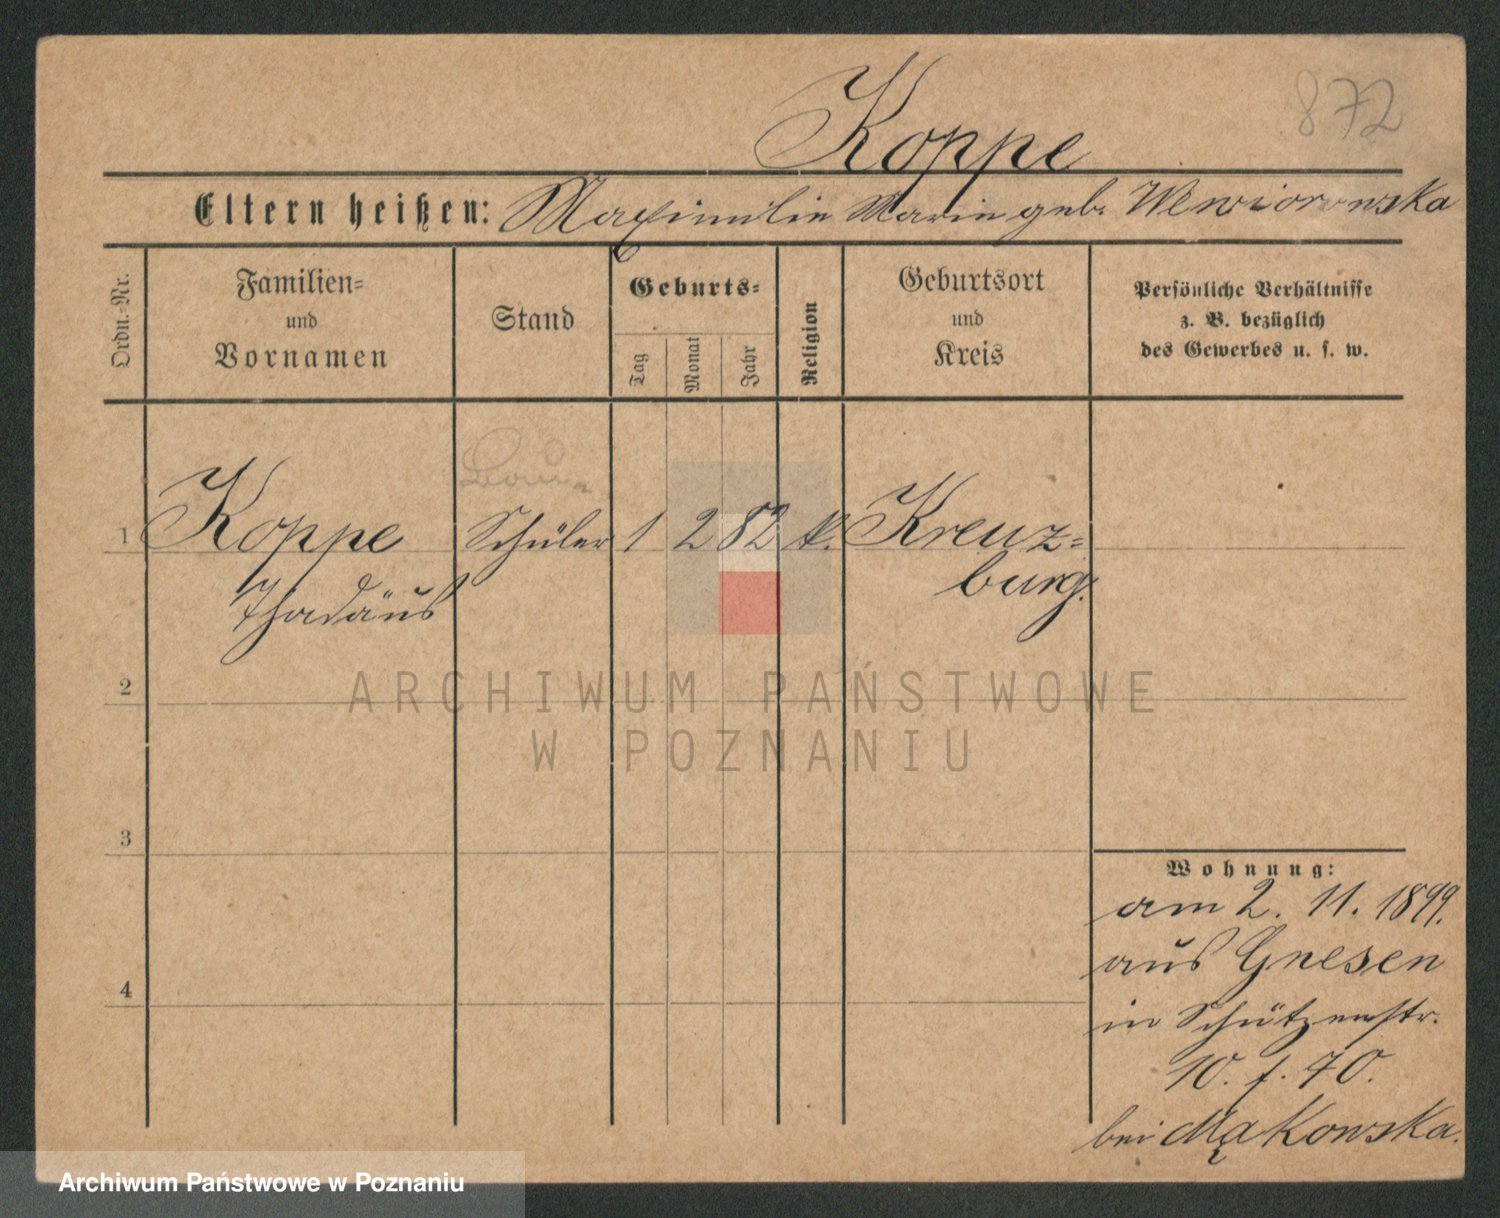 872
Koppe
Eltern heißen: Maximilin Marin geb. Wewiorowska
Ordn.-Nr.
Familien-
und
Vornamen
Stand
Geburts-
Tag
Monat
Jahr
Religion
Geburtsort
und
Kreis
Persönliche Verhältnisse
z. B. bezüglich
des Gewerbes u. s. w.
1 Koppe Schüler 1 2 82 k. Kreuz-
Thadäus burg.
2
ARCHIWUM PAŃSTWOWE
W POZNANIU
3
4
Wohnung:
am 2. 11. 1899.
aus Gnesen
in Schützenstr.
10. f. 70.
bei Mąkowska.
Archiwum Państwowe w Poznaniu